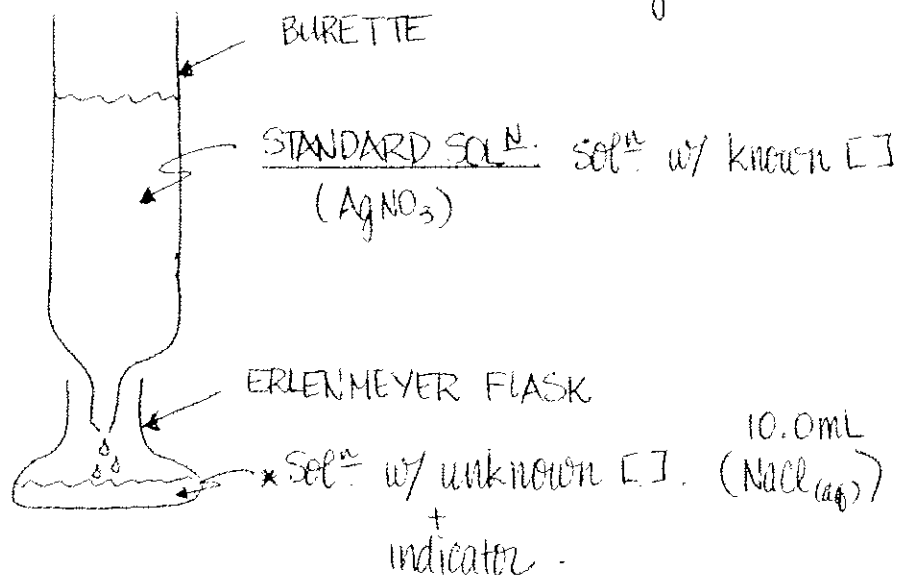 BURETTE
STANDARD SOLN. Soln w/ known []
(AgNO3)
ERLENMEYER FLASK
10.0mL
* Soln w/ unknown []. (NaCl(aq))
+
indicator.